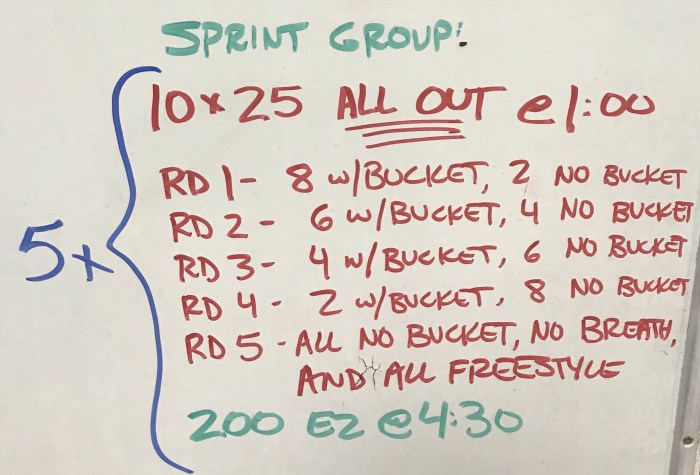 SPRINT GROUP:
10 x 25 ALL OUT @ 1:00
RD 1 - 8 w/BUCKET, 2 NO BUCKET
RD 2 - 6 w/BUCKET, 4 NO BUCKET
5x RD 3 - 4 w/BUCKET, 6 NO BUCKET
RD 4 - 2 w/BUCKET, 8 NO BUCKET
RD 5 - ALL NO BUCKET, NO BREATH,
AND ALL FREESTYLE
200 EZ @ 4:30